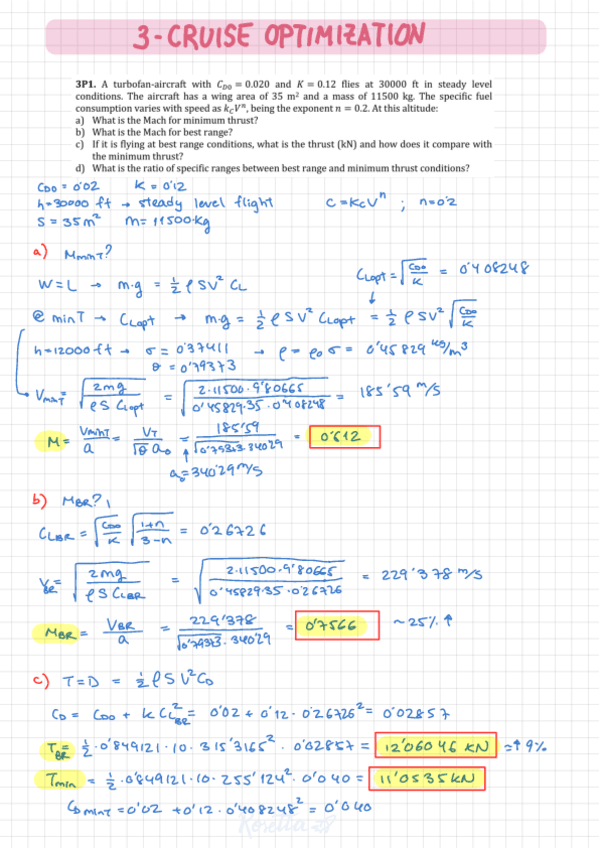 3-CRUISE OPTIMIZATION
3P1. A turbofan-aircraft with C_D0 = 0.020 and K = 0.12 flies at 30000 ft in steady level
conditions. The aircraft has a wing area of 35 m² and a mass of 11500 kg. The specific fuel
consumption varies with speed as k_cVⁿ, being the exponent n = 0.2. At this altitude:
a) What is the Mach for minimum thrust?
b) What is the Mach for best range?
c) If it is flying at best range conditions, what is the thrust (kN) and how does it compare with
the minimum thrust?
d) What is the ratio of specific ranges between best range and minimum thrust conditions?
C_D0 = 0'02 K = 0'12
h=30000 ft → steady level flight C = K_cVⁿ ; n=0'2
S = 35m² m = 11500kg
a) M_minT?
W = L → m·g = ½ ρ S V² C_L C_Lopt = √(C_D0/K) = 0'408248
@ min T → C_Lopt → m·g = ½ ρ S V² C_Lopt = ½ ρ S V² √(C_D0/K)
h=12000 ft → σ = 0'37411 → ρ = ρ₀ σ = 0'45829 kg/m³
θ = 0'79373
V_minT = √(2mg / ρ S C_Lopt) = √(2·11500·9'80665 / 0'45829·35·0'408248) = 185'59 m/s
M = V_minT / a = V_T / √θ a₀ = 185'59 / √0'79373·340'29 = 0'612
a₀=340'29 m/s
b) M_BR?
C_LBR = √(C_D0/K) √(1+n / 3-n) = 0'26726
V_BR = √(2mg / ρ S C_LBR) = √(2·11500·9'80665 / 0'45829·35·0'26726) = 229'378 m/s
M_BR = V_BR / a = 229'378 / √0'79373·340'29 = 0'7566 ~25% ↑
c) T=D = ½ ρ S V² C_D
C_D = C_D0 + K C_LBR² = 0'02 + 0'12·0'26726² = 0'02857
T_BR = ½·0'849121·10·315'3165²·0'02857 = 12'06046 KN ≈↑9%
T_min = ½·0'849121·10·255'124²·0'040 = 11'0535 KN
C_DminT = 0'02 + 0'12·0'408248² = 0'040